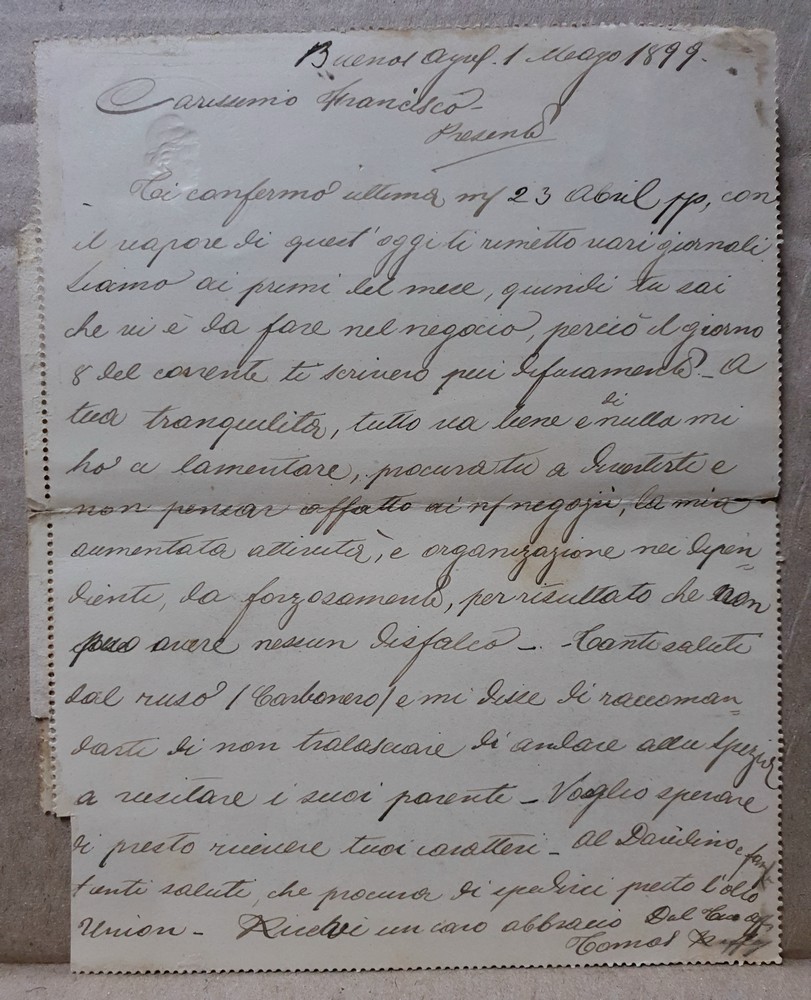 Buenos Ayres. 1 Maggo 1899.
Carissimo Francisco -
Presente
Ti confermo ultima m/ 23 Abril pp, con
il vapore di quest'oggi ti rimetto vari giornali
Siamo ai primi del mese, quindi tu sai
che vi è da fare nel negocio, perciò il giorno
8 del corrente ti scrivero piu difusamente - A
tua tranquilità, tutto va bene e di nulla mi
ho a lamentare, procura tu a divertirte e
non pensar affatto ai n/ negozii, la mia
aumentata attività, e organizazione nei dipen=
dienti, da forzosamente, per risultato che non
puo avere nessun disfalco - - Tanti saluti
dal ruso (Carbonero) e mi disse di raccoman=
darti di non tralasciare di andare alla Spezia
a visitare i suoi parenti - Voglio sperare
di presto ricevere tuoi caratteri - Al Davidino e fam
tanti saluti, che procura di spedirci presto l'olio
Union - Ricevi un caro abbracio Dal tuo
Tomas